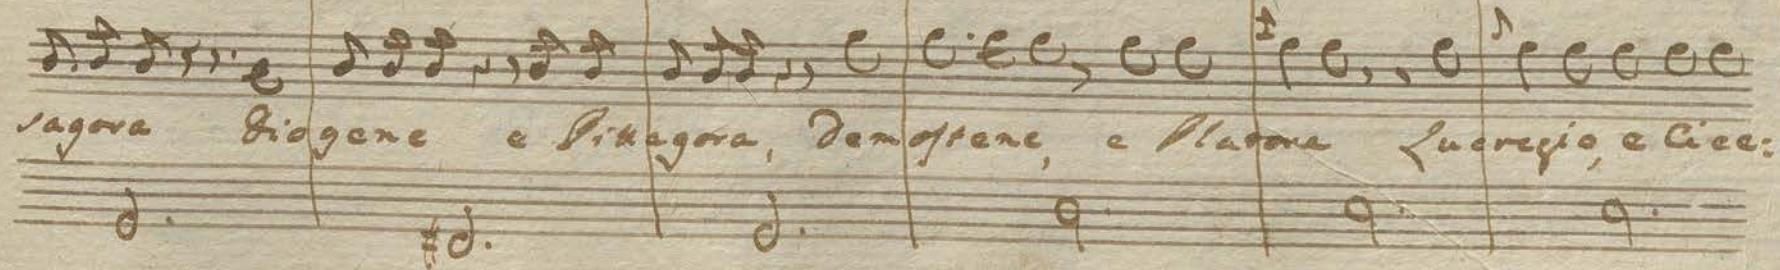 sagora Diogene e Pittagora, Demostene, e Platone Lucrezio, e Cice: